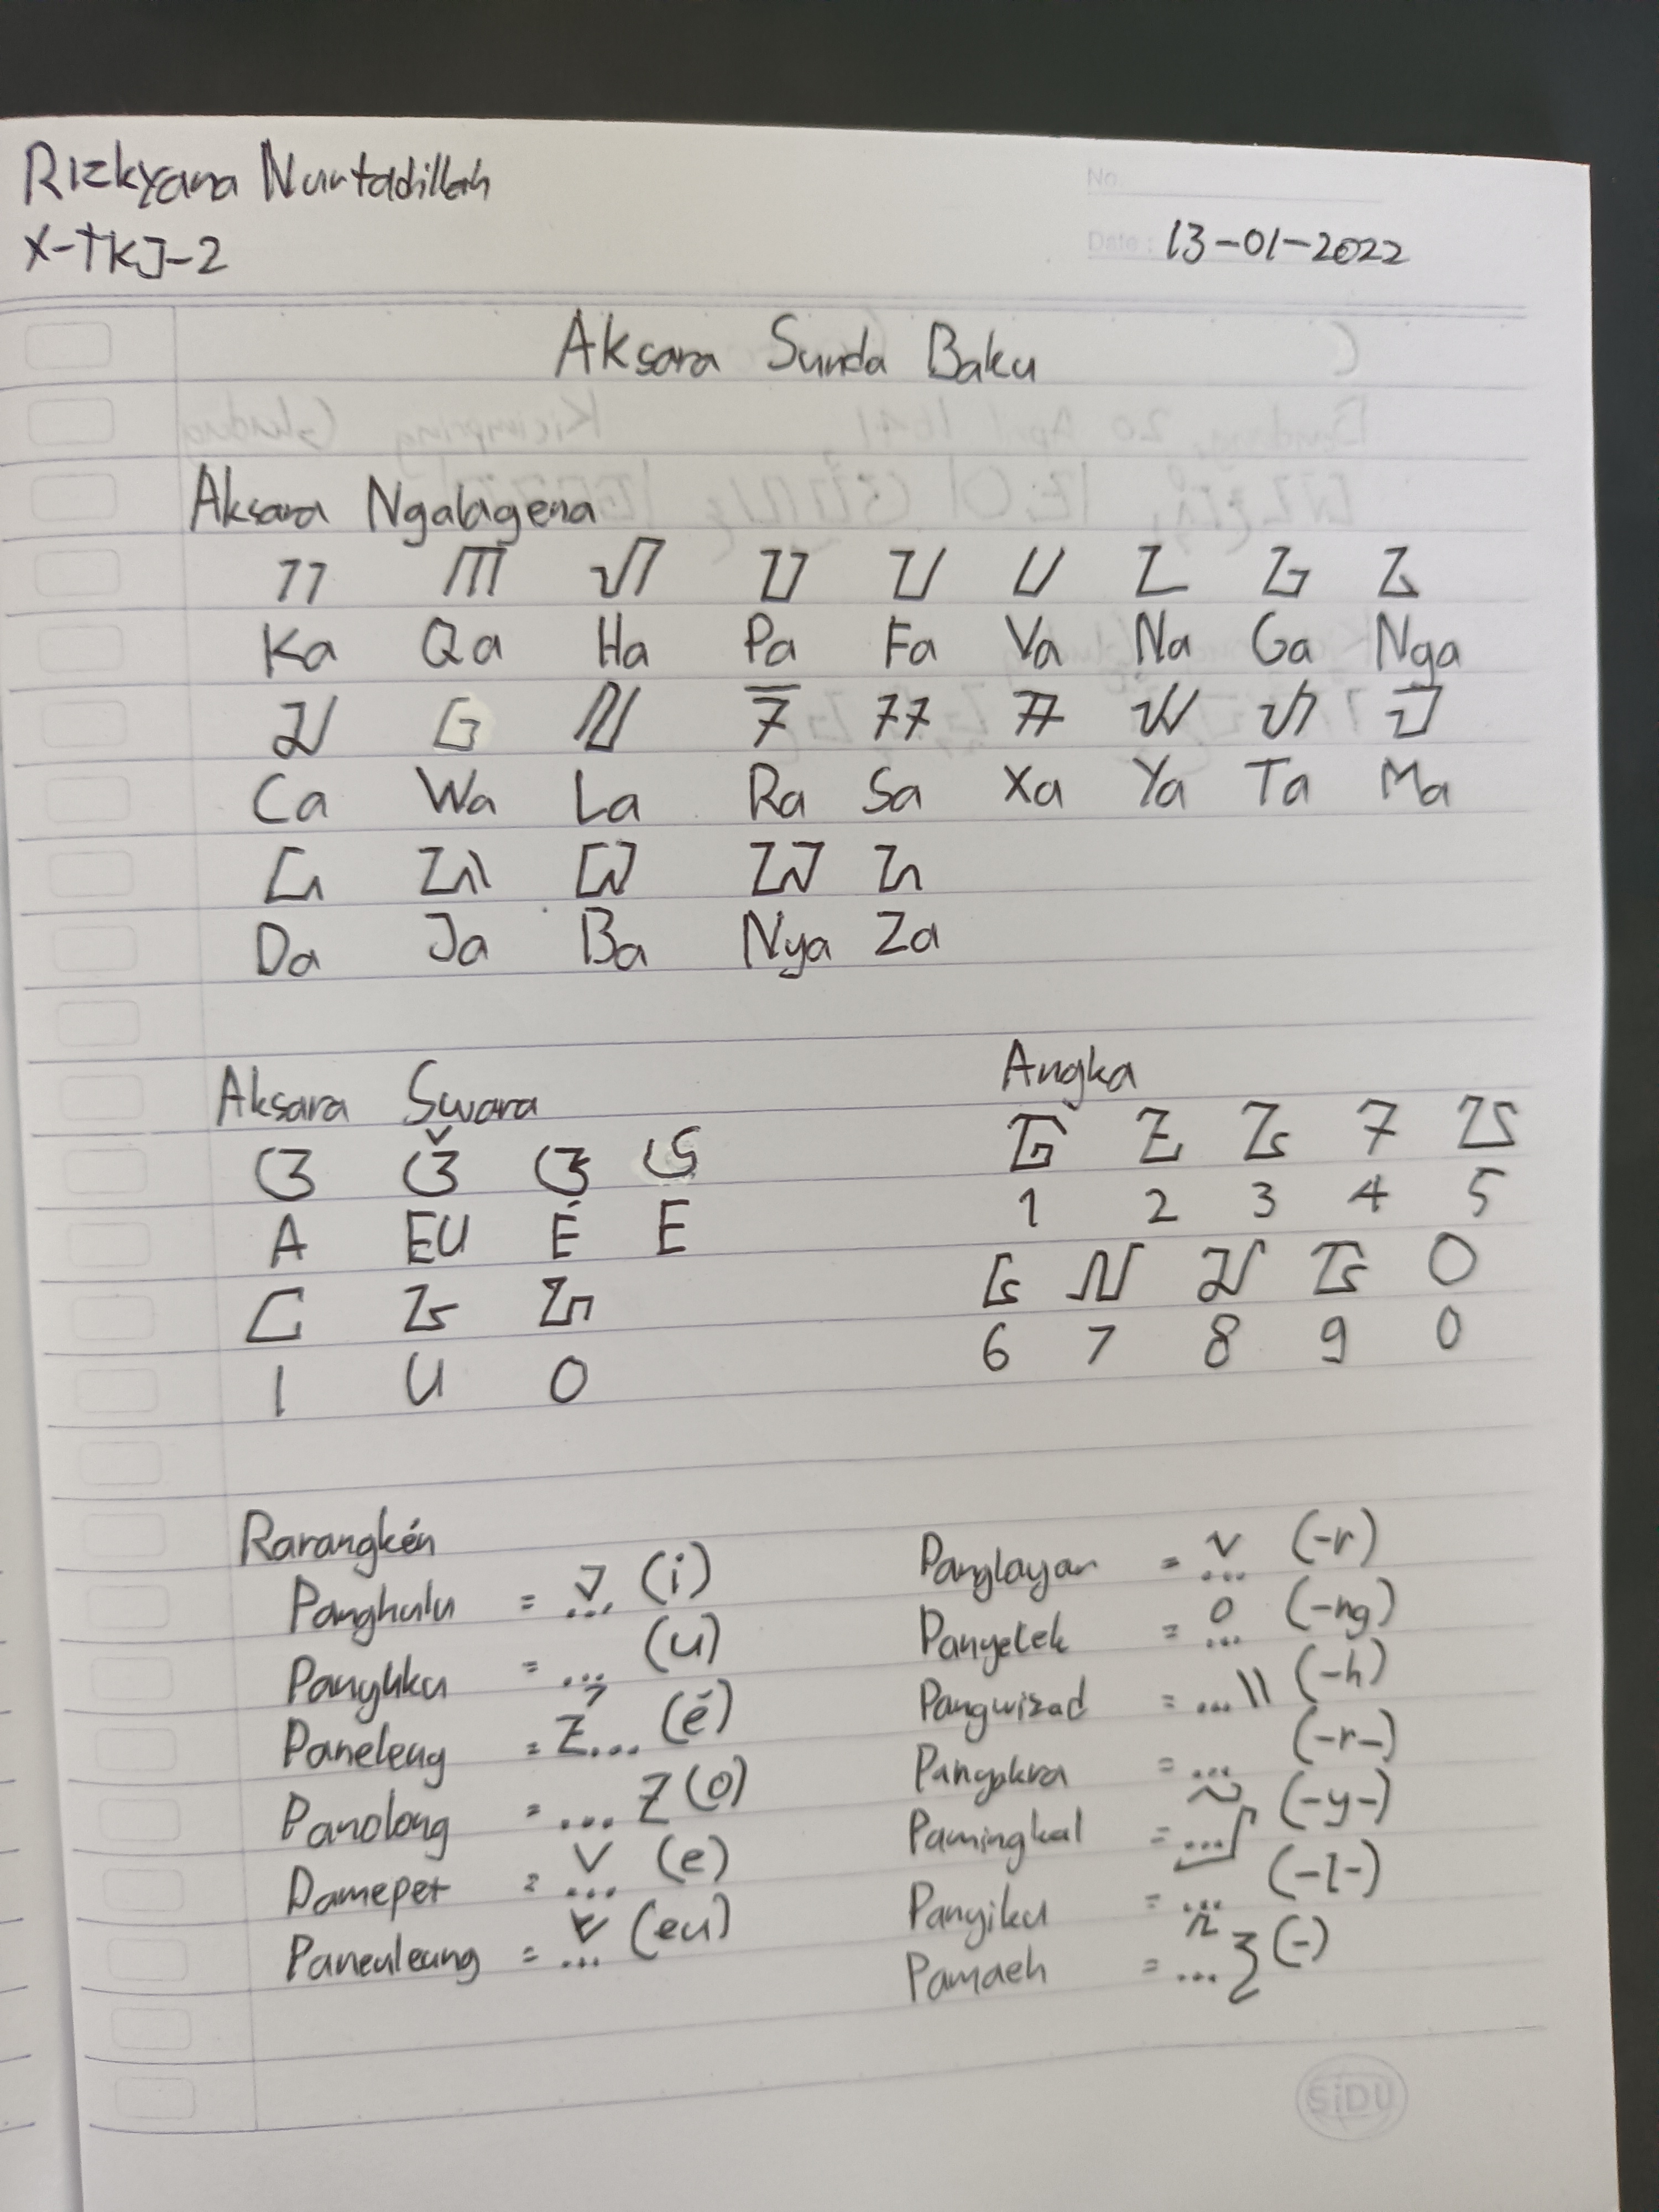 Rizkyana Nurfadillah
X-TKJ-2
No.
Date : 13-01-2022
Aksara Sunda Baku
Aksara Ngalagena
ᮊ ᮋ ᮠ ᮕ ᮖ ᮗ ᮔ ᮌ ᮍ
Ka Qa Ha Pa Fa Va Na Ga Nga
ᮎ ᮝ ᮜ ᮛ ᮞ ᮟ ᮚ ᮒ ᮙ
Ca Wa La Ra Sa Xa Ya Ta Ma
ᮓ ᮏ ᮘ ᮑ ᮐ
Da Ja Ba Nya Za
Aksara Swara
ᮃ ᮉ ᮆ ᮈ
A EU É E
ᮄ ᮅ ᮇ
I U O
Angka
᮱ ᮲ ᮳ ᮴ ᮵
1 2 3 4 5
᮶ ᮷ ᮸ ᮹ ᮰
6 7 8 9 0
Rarangkén
Panghulu = ... (i)
Pangyuku = ... (u)
Paneleng = ... (é)
Panolong = ... (o)
Pamepet = ... (e)
Paneuleung = ... (eu)
Panglayar = ... (-r)
Panyecek = ... (-ng)
Pangwisad = ... (-h)
Panyakra = ... (-r-)
Pamingkal = ... (-y-)
Panyiku = ... (-l-)
Pamaeh = ... (-)
SiDU